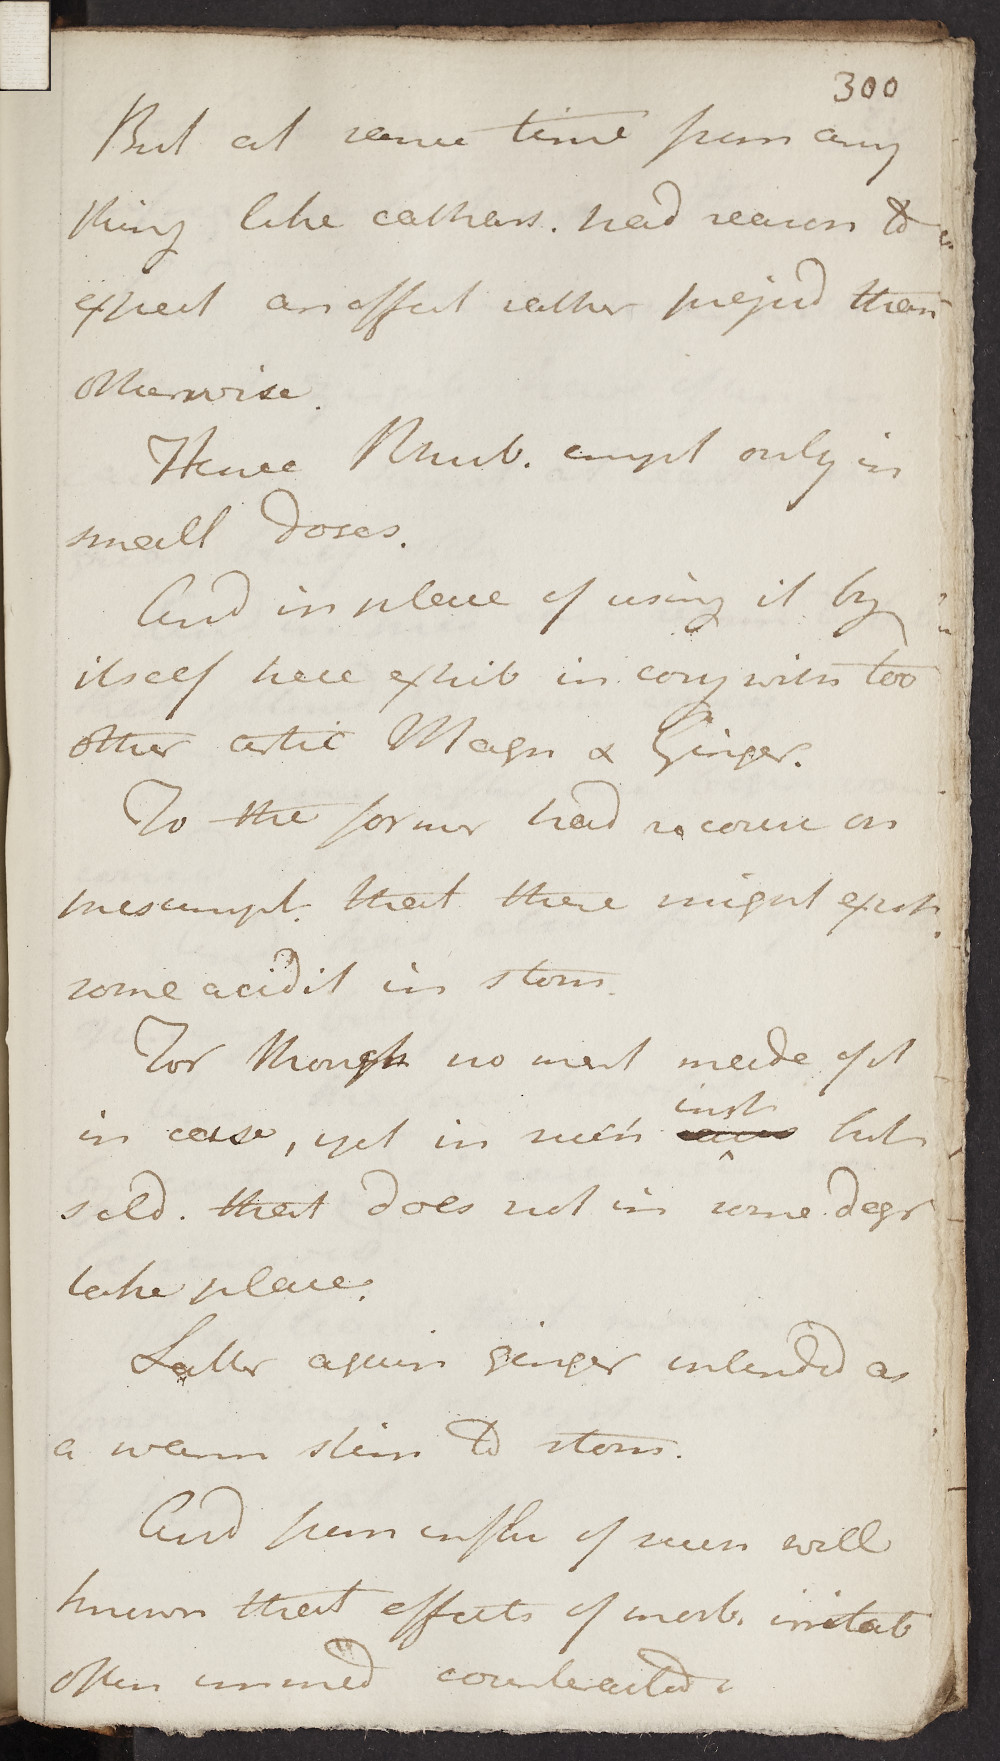 300
But at same time from any
thing like cathars. had reason to
expect an effect rather prejud than
otherwise.
Hence Rhub. empl only in
small doses.
And in place of using it by
itself here exhib in conj with too
other artic Magn & Ginger.
To the former had recourse on
presumpt. that there might exist
some acidit in stom.
For though no ment made of it
in case, yet in such inst but
seld. that does not in some degr
take place.
Latter again ginger intended as
a warm stim to stom.
And from influ of such well
known that effects of morb. irritab
often immed counteracted